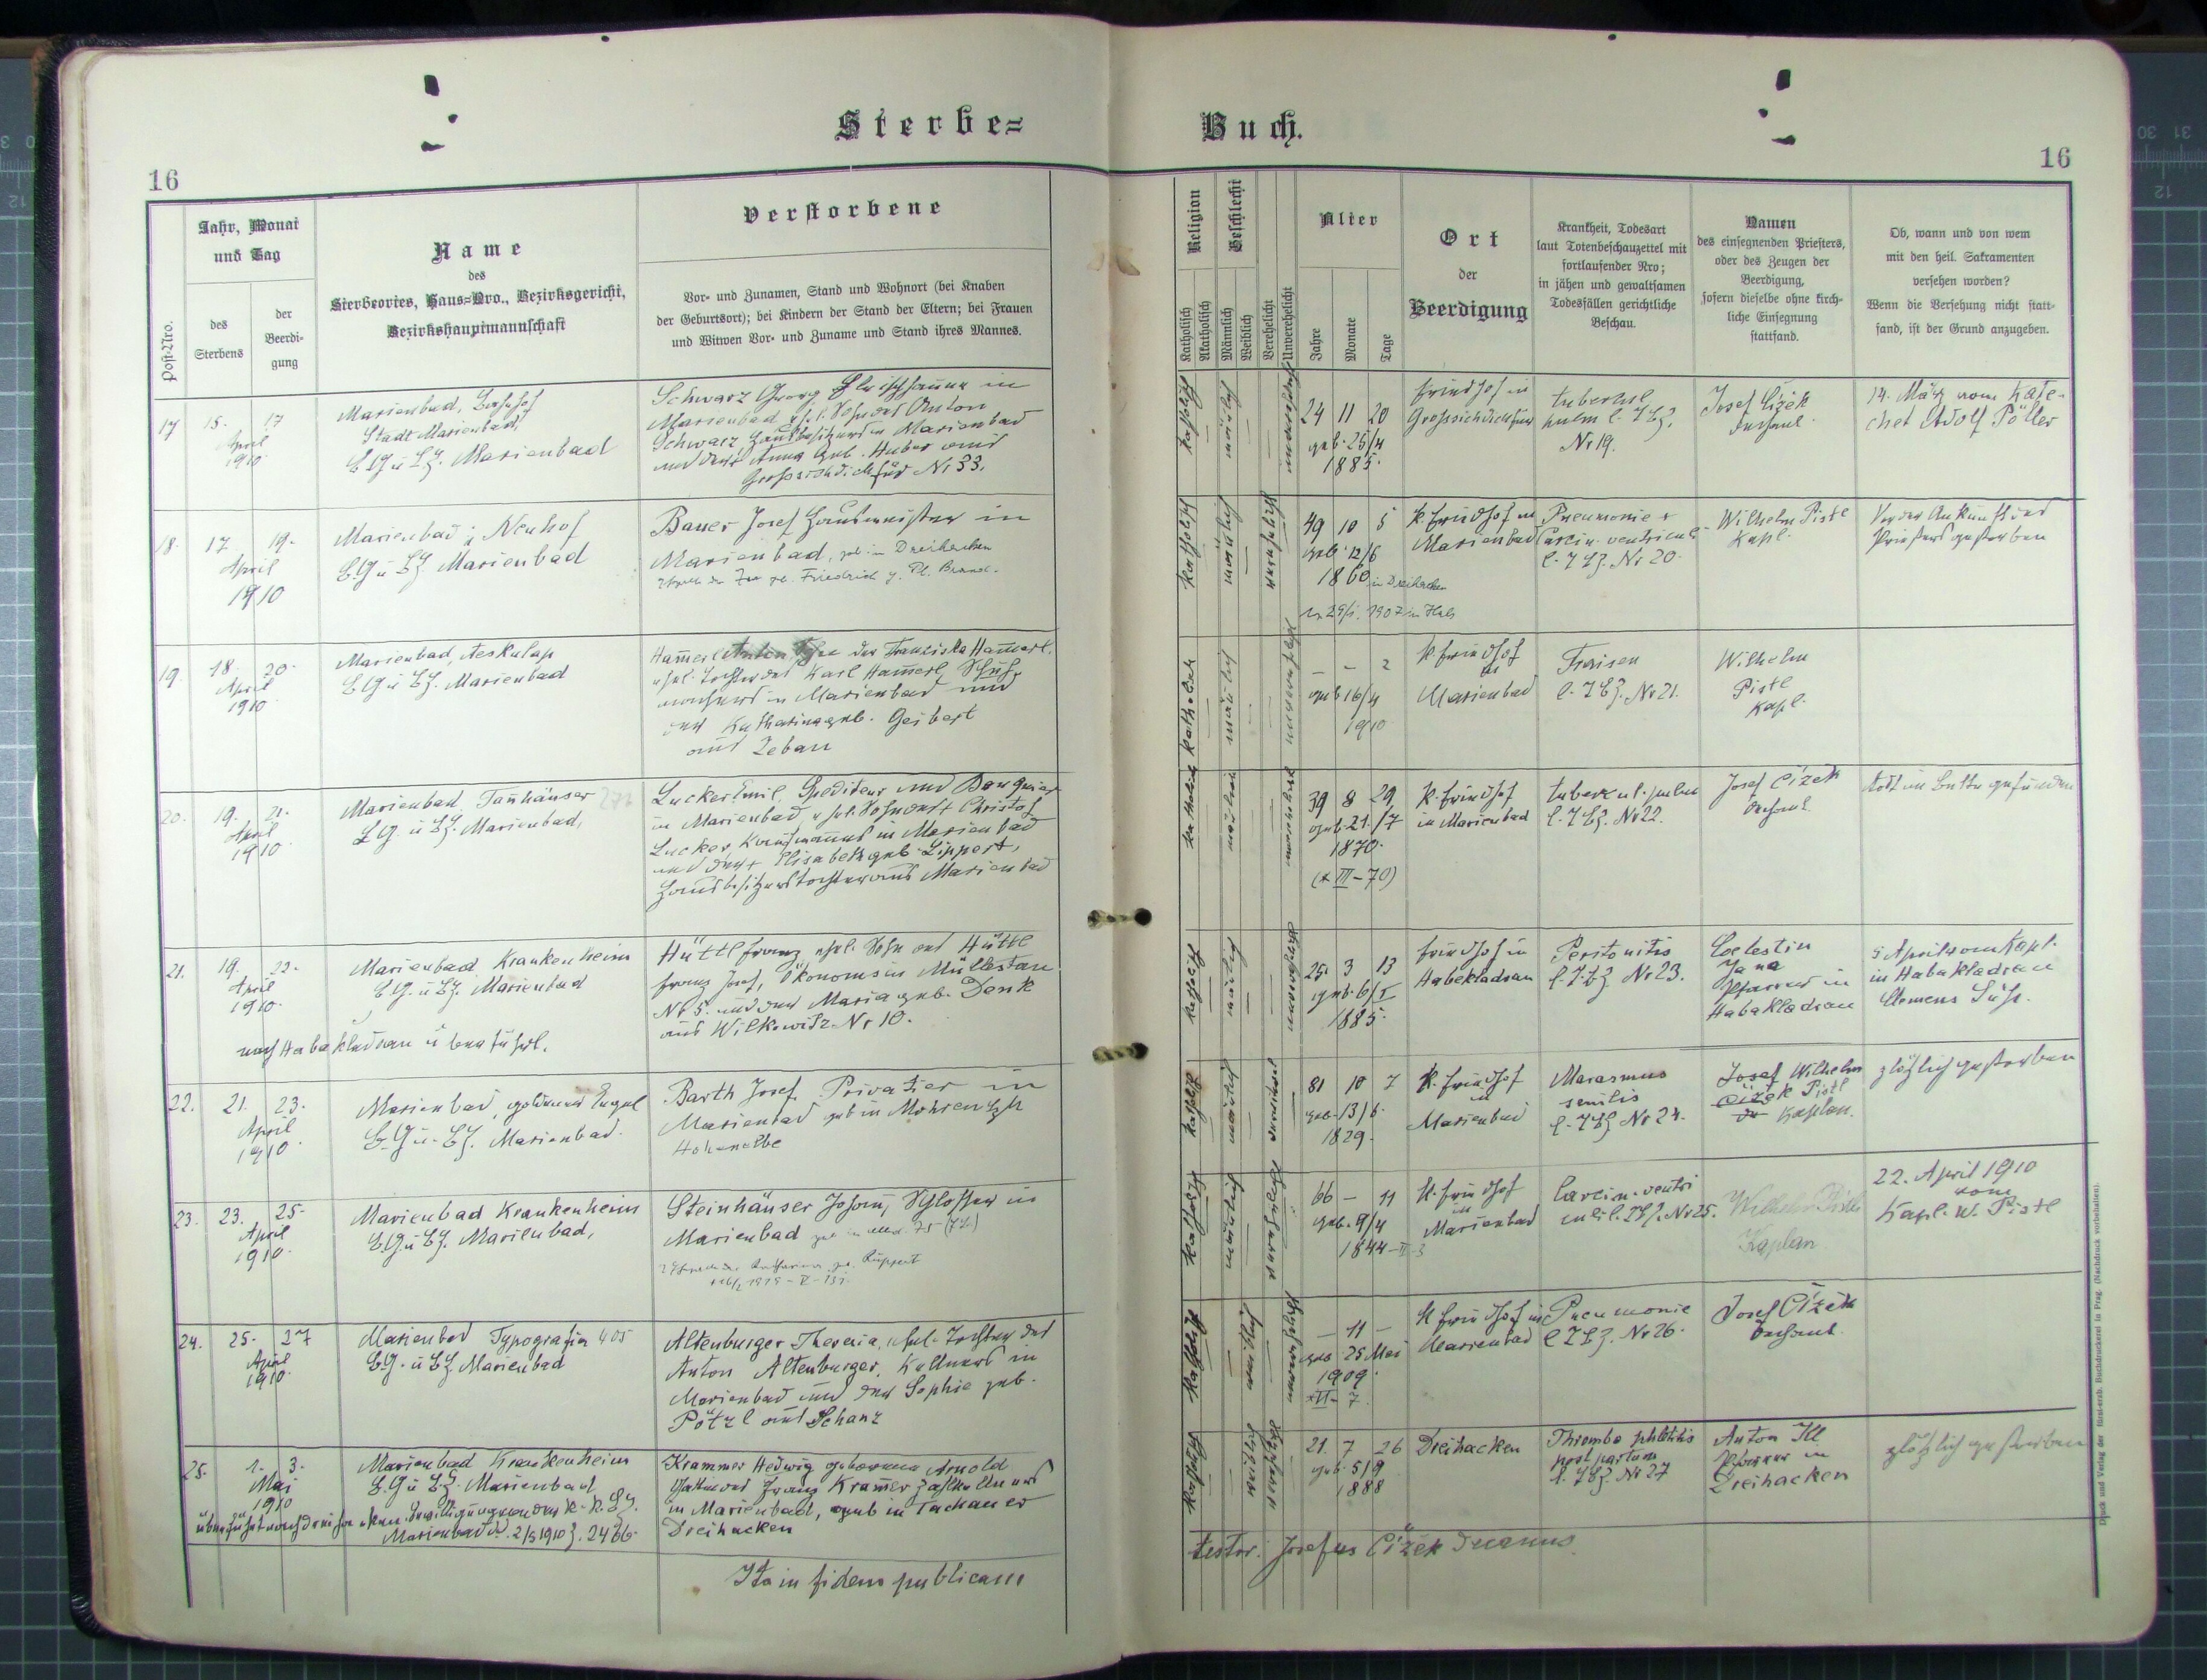 Sterbe=
Buch.
16
16
Post-Nro.
Jahr, Monat
und Tag
des
Sterbens
der
Beerdi-
gung
Name
des
Sterbeortes, Haus-Nro., Bezirksgericht,
Bezirkshauptmannschaft
Verstorbene
Vor- und Zunamen, Stand und Wohnort (bei Knaben
der Geburtsort); bei Kindern der Stand der Eltern; bei Frauen
und Witwen Vor- und Zuname und Stand ihres Mannes.
Religion
Katholisch
Akatholisch
Geschlecht
Männlich
Weiblich
Verehelicht
Unverehelicht
Alter
Jahre
Monate
Tage
Ort
der
Beerdigung
Krankheit, Todesart
laut Totenbeschauzettel mit
fortlaufender Nro;
in jähen und gewaltsamen
Todesfällen gerichtliche
Beschau.
Namen
des einsegnenden Priesters,
oder des Zeugen der
Beerdigung,
sofern dieselbe ohne kirch-
liche Einsegnung
stattfand.
Ob, wann und von wem
mit den heil. Sakramenten
versehen worden?
Wenn die Versehung nicht statt-
fand, ist der Grund anzugeben.
17 15. 17
April
1910
Marienbad, Bahnhof
Stadt Marienbad,
BG u BH. Marienbad
Schwarz Georg Fleischhauer in
Marienbad, ehl. Sohn des Anton
Schwarz Hausbesitzers in Marienbad
und der Anna geb. Huber aus
Grosssichdichfür Nr 33.
katholisch
männlich
24 11 20
geb. 25/4
1885.
Friedhof in
Grosssichdichfür
tubercul.
pulm l. TBZ.
Nr 19.
Josef Čížek
Dechant.
14. März vom Kate-
chet Adolf Pöller
18. 17. 19.
April
1910
Marienbad, Neuhof
BG u BH Marienbad
Bauer Josef Hausmeister in
Marienbad, geb in Dreihacken
katholisch
männlich
verehelicht
49 10 5
geb. 12/6
1860 in Dreihacken
K. Friedhof in
Marienbad
Pneumonie +
Carcin. ventriculi
l. TBZ. Nr 20.
Wilhelm Pistl
Kapl.
Vor der Ankunft des
Priesters gestorben
19. 18. 20.
April
1910
Marienbad, Aeskulap
BG u BH. Marienbad
der Franciska Hammerl.
ehel. Tochter des Karl Hammerl Schuh-
machers in Marienbad und
der Katharina geb. Geibert
aus Leban
männlich
– – 2
geb 16/4
1910
K. Friedhof
in
Marienbad
Fraisen
l. TBZ. Nr 21.
Wilhelm
Pistl
Kapl.
20. 19. 21.
April
1910
Marienbad Tanhäuser
BG. u BH. Marienbad,
Lucker Emil, Spediteur und Banquier
in Marienbad, ehel. Sohn des + Christof
Lucker Kaufmanns in Marienbad
und der + Elisabeth geb. Lippert,
Hausbesitzerstochter aus Marienbad
39 8 29
geb. 21./7
1870.
(* III – 70)
K. Friedhof
in Marienbad
tubercul. pulm
l. TBZ. Nr 22.
Josef Čížek
Dechant.
todt im Bette gefunden
21. 19. 22.
April
1910.
Marienbad Krankenheim
BG. u BH. Marienbad
nach Habakladrau überführt.
Hüttl Franz ehel. Sohn des Hüttl
Franz Josef, Ökonoms in Müllestau
Nr 5. und der Maria geb. Denk
aus Wilkowitz Nr 10.
katholisch
männlich
25 3 13
geb. 6/I
1885.
Friedhof in
Habakladrau
Peritonitis
l. TBZ Nr 23.
Coelestin
Jana
Pfarrer in
Habakladrau
5 April vom Kapl.
in Habakladrau
Clemens Süß.
22. 21. 23.
April
1910
Marienbad, goldener Engel
BG u. BH. Marienbad.
Barth Josef Privatier in
Marienbad geb in Mohren BH
Hohenelbe
katholisch
männlich
81 10 7
geb. 13/6.
1829.
K. Friedhof
in
Marienbad
Marasmus
senilis
l. TBZ Nr 24.
Josef Wilhelm
Čížek Pistl
Kaplan.
plötzlich gestorben
23. 23. 25.
April
1910
Marienbad Krankenheim
BG u BH. Marienbad,
Steinhäuser Johann, Schlosser in
Marienbad
katholisch
männlich
66 – 11
geb. 9/4
1844
K. Friedhof
in
Marienbad
Carcin. ventri
culi l. TBZ. Nr 25.
Wilhelm Pistl
Kaplan
22. April 1910
vom
Kapl. W. Pistl
24. 25. 27
April
1910.
Marienbad Typografia 405
BG. u BH Marienbad
Altenburger Theresia, ehel. Tochter des
Anton Altenburger, Kellners in
Marienbad und der Sophie geb.
Pötzl aus Schanz
katholisch
weiblich
– 11 –
geb 25 Mai
1909.
K Friedhof in
Marienbad
Pneumonie
l TBZ. Nr 26.
Josef Čížek
Dechant.
25. 1. 3.
Mai
1910
Marienbad Krankenheim
BG u BH. Marienbad
überführt nach Dreihacken. Bewilligung von der k. k. BH.
Marienbad d. 2/5 1910 Z. 2486.
Krammer Hedwig geborene Arnold
Gattin des Franz Kramer Zahlkellners
in Marienbad, geb in Tachauer
Dreihacken
katholisch
weiblich
verehelicht
21. 7 26
geb. 5/9
1888
Dreihacken
Thrombo phlebitis
post partum
l. TBZ. Nr 27
Anton Ill
Pfarrer in
Dreihacken
plötzlich gestorben
Ita in fidem publicam
testor: Josefus Čížek Decanus.
Druck und Verlag der fürst-erzb. Buchdruckerei in Prag. (Nachdruck vorbehalten).